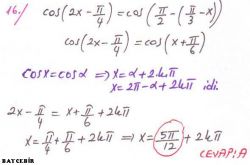 16./ cos(2x-π/4)=cos(π/2-(π/3-x))
cos(2x-π/4)=cos(x+π/6)
cosx=cosα ⇒ x=α+2kπ
x=2π-α+2kπ idi.
2x-π/4=x+π/6+2kπ
x=π/4+π/6+2kπ ⇒ x=5π/12+2kπ
CEVAP:A
BAYCEBİR